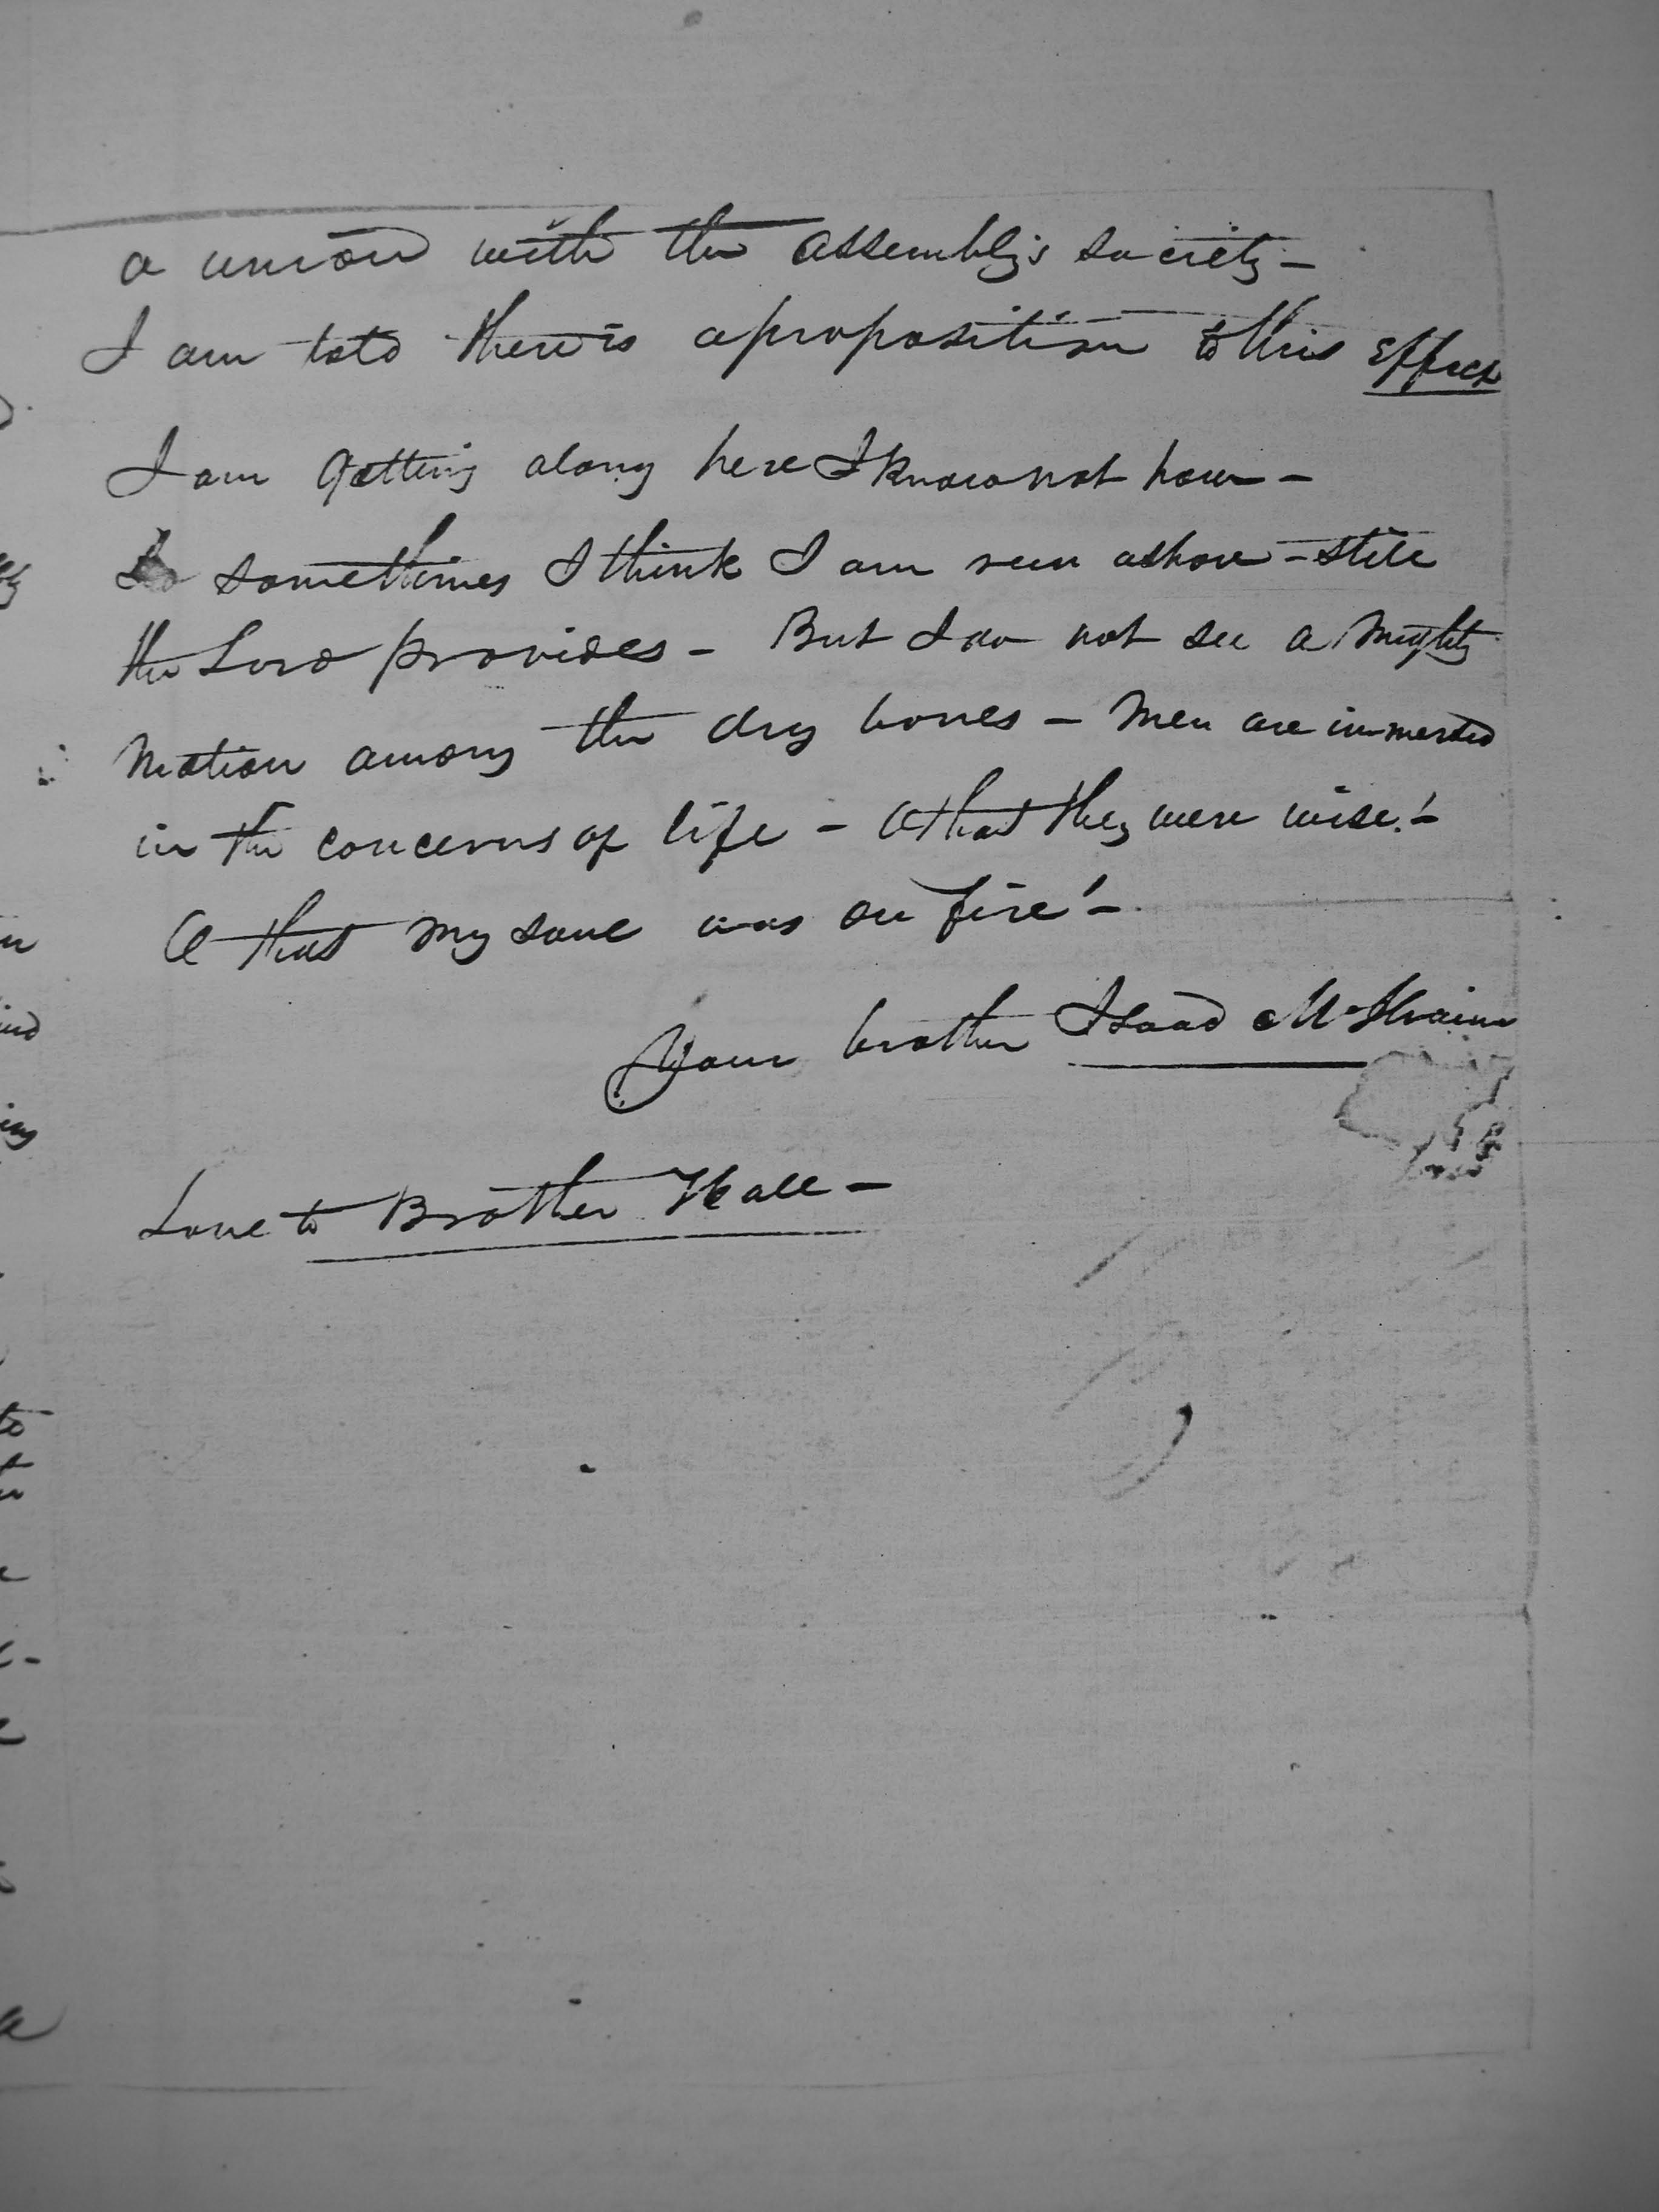 a union with the assembly's society –
I am told there is a proposition to this effect
I am getting along here I know not how –
sometimes I think I am run ashore – still
the Lord provides – But I do not see a mighty
motion among the dry bones – Men are immersed
in the concerns of life – O that they were wise! –
O that my soul was on fire! –
Your brother Isaac McIlvaine
Love to Brother Hall –